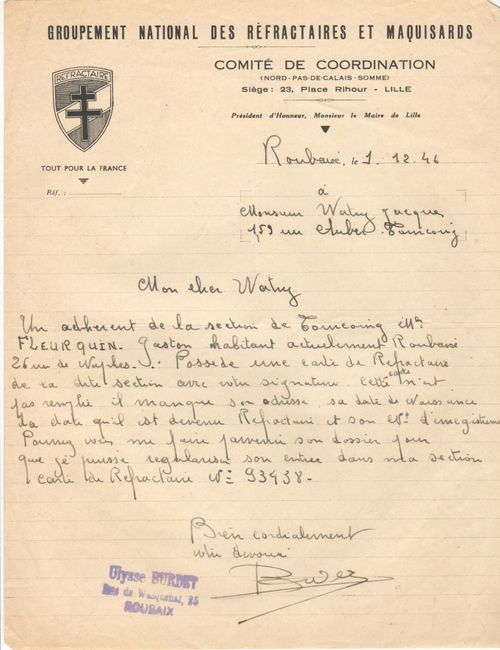 GROUPEMENT NATIONAL DES RÉFRACTAIRES ET MAQUISARDS
COMITÉ DE COORDINATION
(NORD-PAS-DE-CALAIS-SOMME)
Siège: 23, Place Rihour - LILLE
Président d'Honneur, Monsieur le Maire de Lille
RÉFRACTAIRE
TOUT POUR LA FRANCE
Réf. :
Roubaix, le 1 12.46
à
Monsieur Watry Jacques
159 rue Auber. Tourcoing
Mon cher Watry
Un adherent de la section de Tourcoing Mr
FLEURQUIN. Gaston habitant actuellement Roubaix
26 rue de Naples. Possede une carte de Refractaire
de la dite section avec votre signature cette carte n'est
pas remplie il manque son adresse sa date de Naissance
la date qu'il est devenu Refractaire et son No d'enregistrement
Pourriez vous me faire parvenir son dossier pour
que je puisse regulariser son entree dans ma section
carte de Refractaire No 93438.
Bien cordialement
votre devoué
Ulysse BURDET
Rue de Wasquehal, 25
ROUBAIX